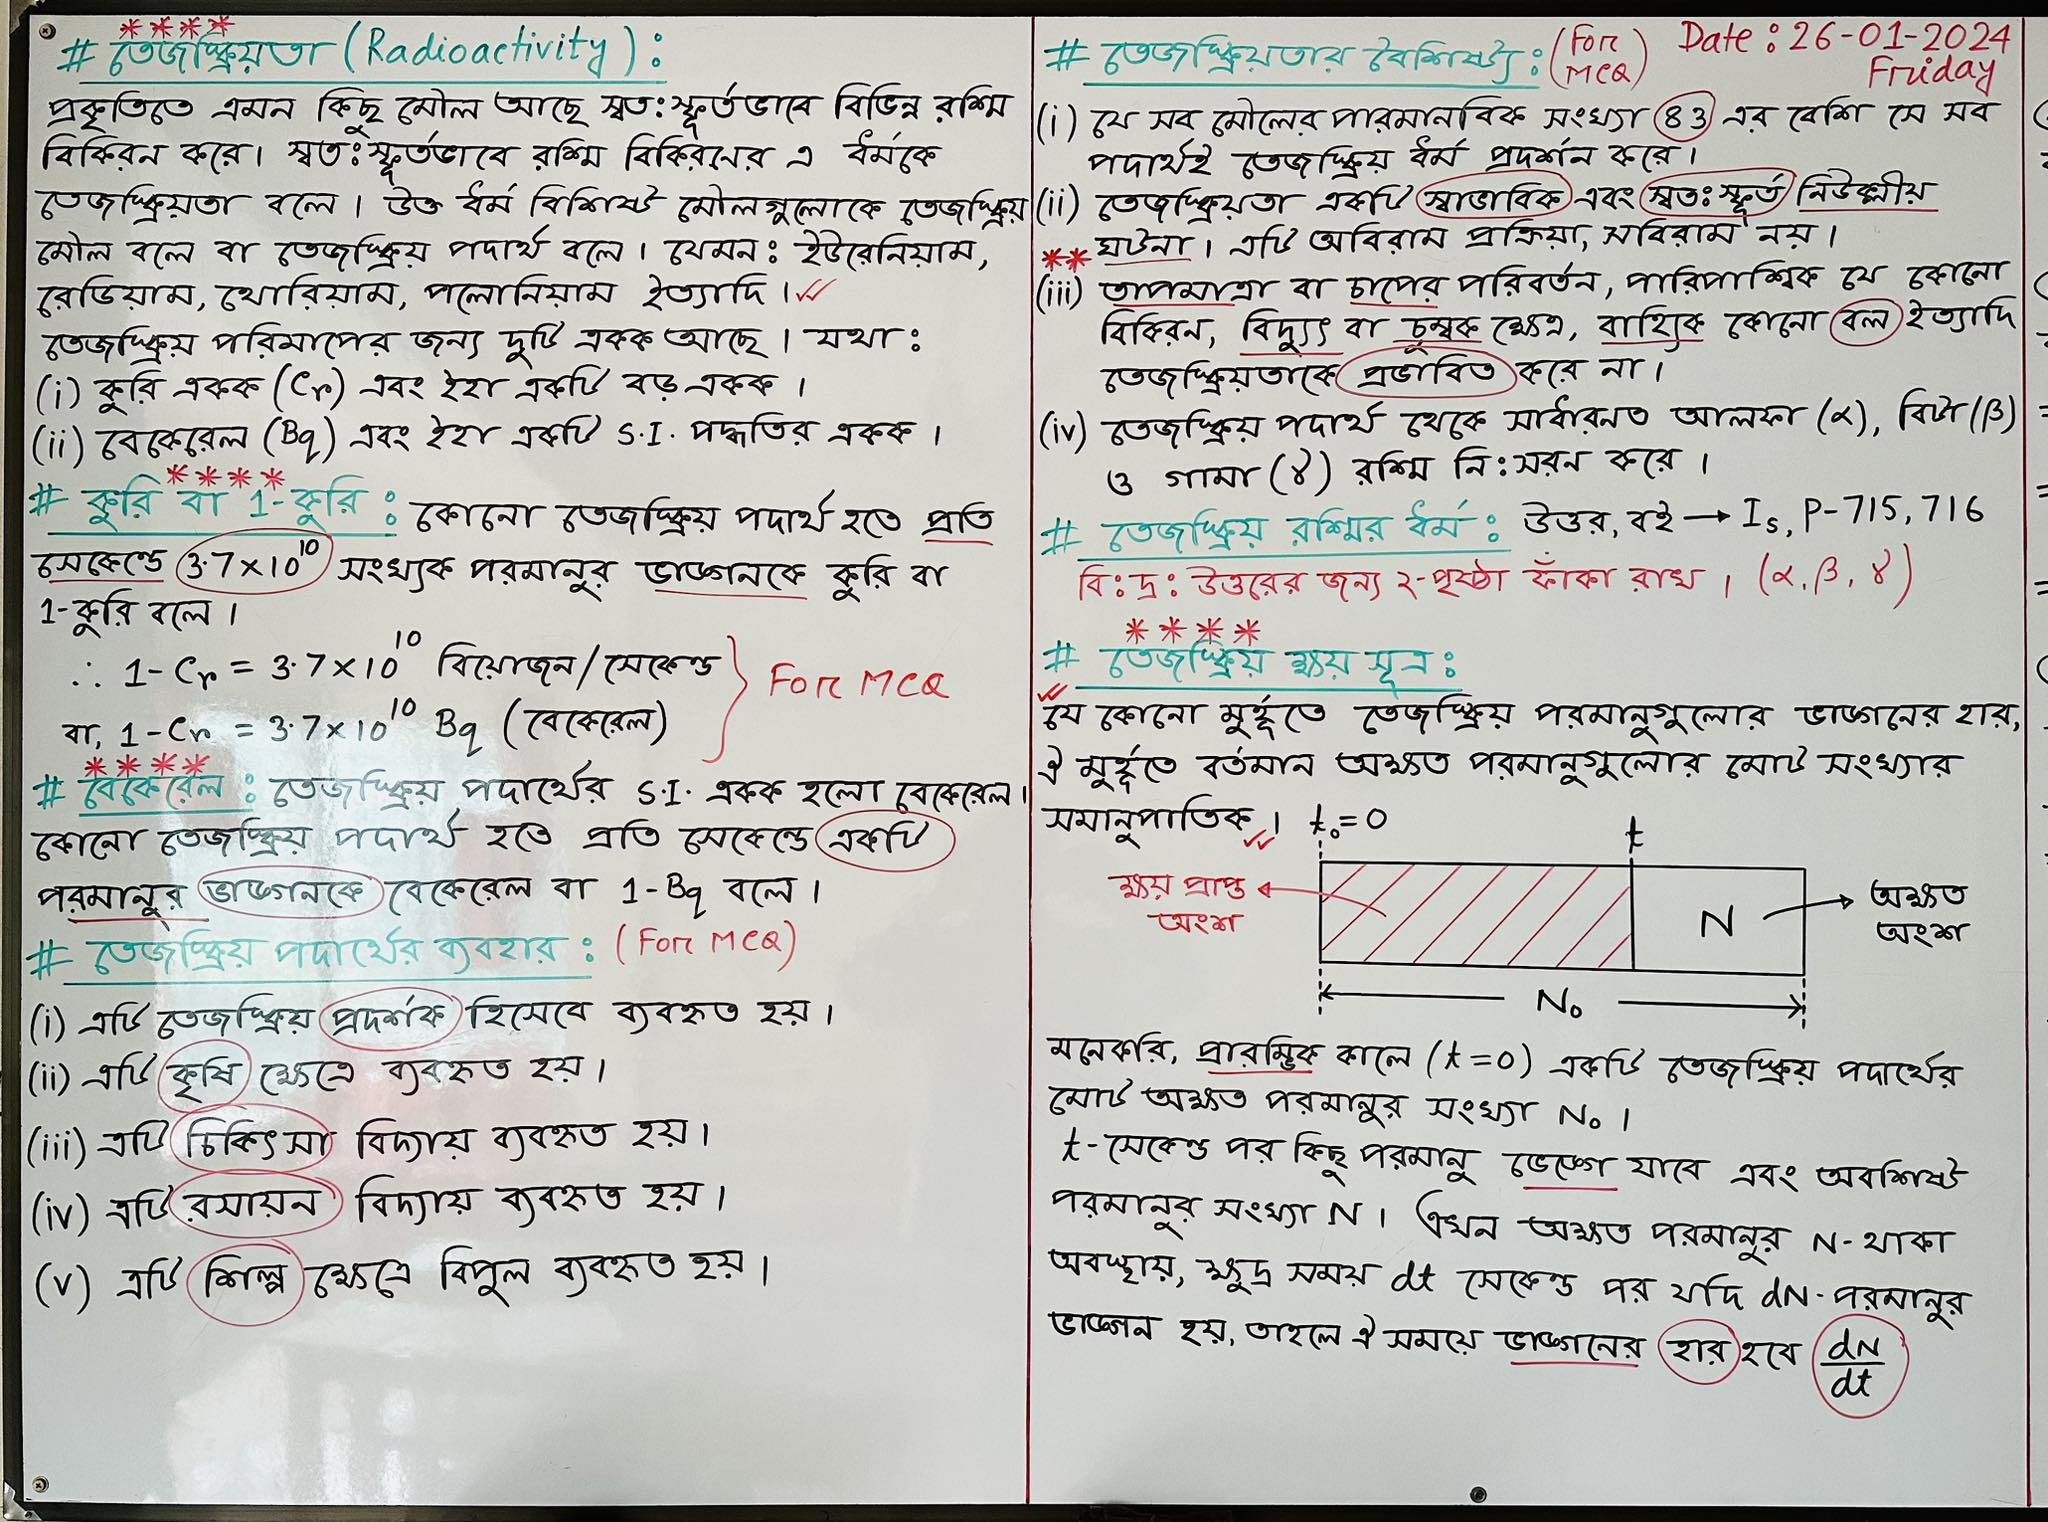 # তেজষ্ক্রিয়তা (Radioactivity) :
প্রকৃতিতে এমন কিছু মৌল আছে স্বতঃস্ফূর্তভাবে বিভিন্ন রশ্মি
বিকিরন করে। স্বতঃস্ফূর্তভাবে রশ্মি বিকিরনের এ ধর্মকে
তেজষ্ক্রিয়তা বলে। উক্ত ধর্ম বিশিষ্ট মৌলগুলোকে তেজষ্ক্রিয়
মৌল বলে বা তেজষ্ক্রিয় পদার্থ বলে। যেমনঃ ইউরেনিয়াম,
রেডিয়াম, থোরিয়াম, পলোনিয়াম ইত্যাদি।
তেজষ্ক্রিয় পরিমাপের জন্য দুটি একক আছে। যথাঃ
(i) কুরি একক (Cr) এবং ইহা একটি বড় একক।
(ii) বেকেরেল (Bq) এবং ইহা একটি S.I. পদ্ধতির একক।
# কুরি বা 1-কুরি : কোনো তেজষ্ক্রিয় পদার্থ হতে প্রতি
সেকেন্ডে 3.7×10¹⁰ সংখ্যক পরমানুর ভাঙ্গনকে কুরি বা
1-কুরি বলে।
∴ 1-Cr = 3.7×10¹⁰ বিয়োজন/সেকেন্ড
বা, 1-Cr = 3.7×10¹⁰ Bq (বেকেরেল)
For MCQ
# বেকেরেল : তেজষ্ক্রিয় পদার্থের S.I. একক হলো বেকেরেল।
কোনো তেজষ্ক্রিয় পদার্থ হতে প্রতি সেকেন্ডে একটি
পরমানুর ভাঙ্গনকে বেকেরেল বা 1-Bq বলে।
# তেজষ্ক্রিয় পদার্থের ব্যবহার : (For MCQ)
(i) এটি তেজষ্ক্রিয় প্রদর্শক হিসেবে ব্যবহৃত হয়।
(ii) এটি কৃষি ক্ষেত্রে ব্যবহৃত হয়।
(iii) এটি চিকিৎসা বিদ্যায় ব্যবহৃত হয়।
(iv) এটি রসায়ন বিদ্যায় ব্যবহৃত হয়।
(v) এটি শিল্প ক্ষেত্রে বিপুল ব্যবহৃত হয়।
Date : 26-01-2024
Friday
# তেজষ্ক্রিয়তার বৈশিষ্ট্য : (For MCQ)
(i) যে সব মৌলের পারমানবিক সংখ্যা 83 এর বেশি সে সব
পদার্থই তেজষ্ক্রিয় ধর্ম প্রদর্শন করে।
(ii) তেজষ্ক্রিয়তা একটি স্বাভাবিক এবং স্বতঃস্ফূর্ত নিউক্লীয়
ঘটনা। এটি অবিরাম প্রক্রিয়া, সবিরাম নয়।
(iii) তাপমাত্রা বা চাপের পরিবর্তন, পারিপাশ্বিক যে কোনো
বিকিরন, বিদ্যুৎ বা চুম্বক ক্ষেত্র, বাহ্যিক কোনো বল ইত্যাদি
তেজষ্ক্রিয়তাকে প্রভাবিত করে না।
(iv) তেজষ্ক্রিয় পদার্থ থেকে সাধারনত আলফা (α), বিটা (β)
ও গামা (γ) রশ্মি নিঃসরন করে।
# তেজষ্ক্রিয় রশ্মির ধর্ম : উত্তর, বই → Is, P-715, 716
বিঃদ্রঃ উত্তরের জন্য ২-পৃষ্ঠা ফাঁকা রাখ। (α, β, γ)
# তেজষ্ক্রিয় ক্ষয় সূত্র :
যে কোনো মুর্হূতে তেজষ্ক্রিয় পরমানুগুলোর ভাঙ্গনের হার,
ঐ মুর্হূতে বর্তমান অক্ষত পরমানুগুলোর মোট সংখ্যার
সমানুপাতিক।
t₀=0
t
ক্ষয় প্রাপ্ত
অংশ
N
অক্ষত
অংশ
N₀
মনেকরি, প্রারম্ভিক কালে (t=0) একটি তেজষ্ক্রিয় পদার্থের
মোট অক্ষত পরমানুর সংখ্যা N₀।
t-সেকেন্ড পর কিছু পরমানু ভেঙ্গে যাবে এবং অবশিষ্ট
পরমানুর সংখ্যা N। এখন অক্ষত পরমানুর N-থাকা
অবস্থায়, ক্ষুদ্র সময় dt সেকেন্ড পর যদি dN-পরমানুর
ভাঙ্গন হয়, তাহলে ঐ সময়ে ভাঙ্গনের হার হবে dN/dt